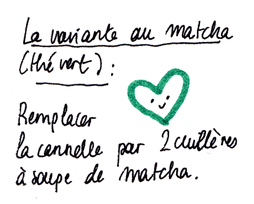 La variante au matcha
(thé vert) :
Remplacer
la cannelle par 2 cuillères
à soupe de matcha.